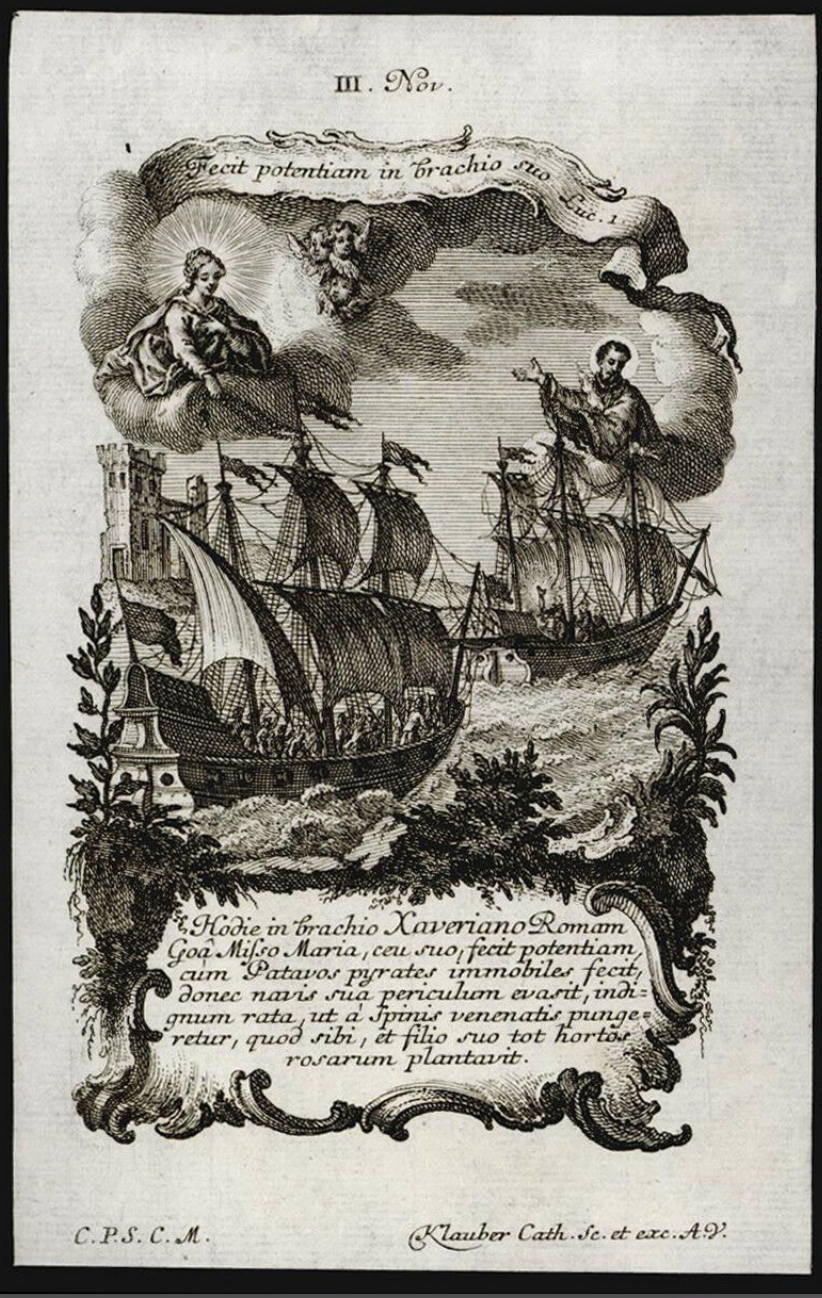 III. Nov.
Fecit potentiam in brachio suo Luc. 1
Hodie in brachio Xaveriano Romam
Goâ Misso Maria, ceu suo, fecit potentiam,
cùm Patavos pyrates immobiles fecit,
donec navis sua periculum evasit, indi=
gnum rata, ut à Spinis venenatis punge=
retur, quod sibi, et filio suo tot hortos
rosarum plantavit.
C. P. S. C. M.
Klauber Cath. Sc. et exc. A. V.